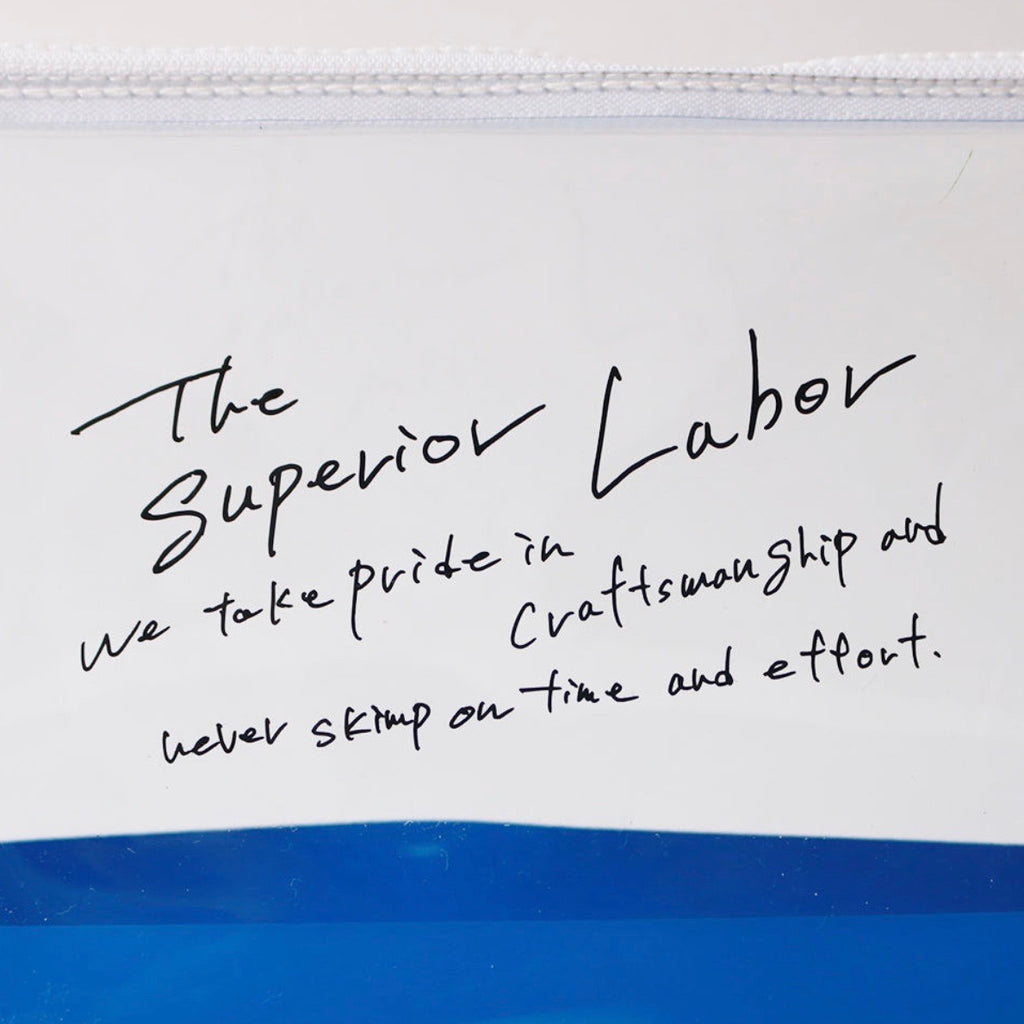 The
Superior Labor
We take pride in
Craftsmanship and
never skimp on time and effort.